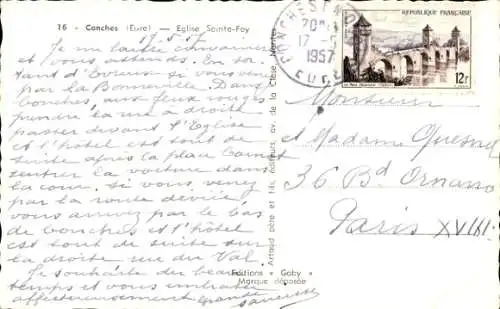 16 - Conches (Eure) — Eglise Sainte-Foy
Je me laisse convaincre
et vous attends. En
tant d'Evreux si vous venez
par la Bonneville. Dans
Conches, aux feux rouges
prendre la rue à droite
passer devant l'Eglise
et l'hôtel est tout de
suite après la place Carnot
rentrer la voiture dans
la cour. Si vous venez
par la route déviée,
vous arrivez par le bas
de Conches et l'hôtel
est tout de suite sur
la droite rue du Val.
Je souhaite du beau
temps et vous embrasse
affectueusement
Artaud père et fils, éditeurs, av. de la Close, Nantes
Editions « Gaby »
Marque déposée
CONCHES EN
20H
17 - 5
1957
EURE
REPUBLIQUE FRANÇAISE
12F
Monsieur
et Madame Quesnel
36 Bd Ornano
Paris XVIII